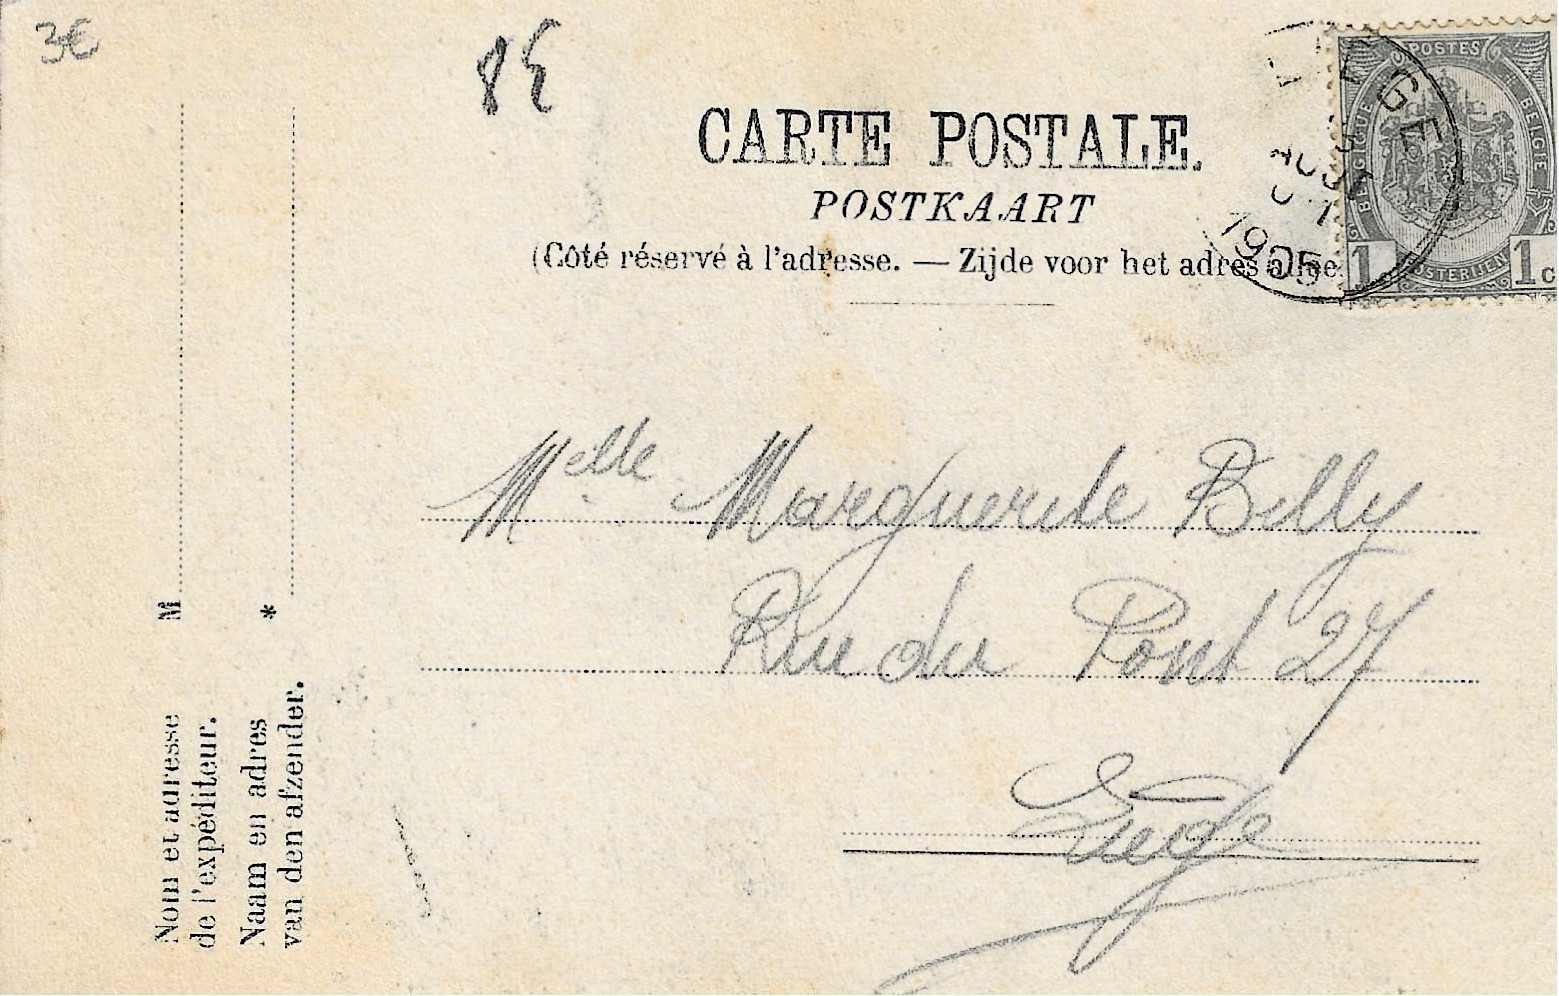 3€
8€
CARTE POSTALE.
POSTKAART
(Côté réservé à l'adresse. — Zijde voor het adres
POSTES
BELGIQUE
BELGIE
POSTERIJEN
1
1c
LIEGE
1905
Melle Marguerite Billy
Rue du Pont 27
Liège
M
*
Nom et adresse
de l'expéditeur.
Naam en adres
van den afzender.